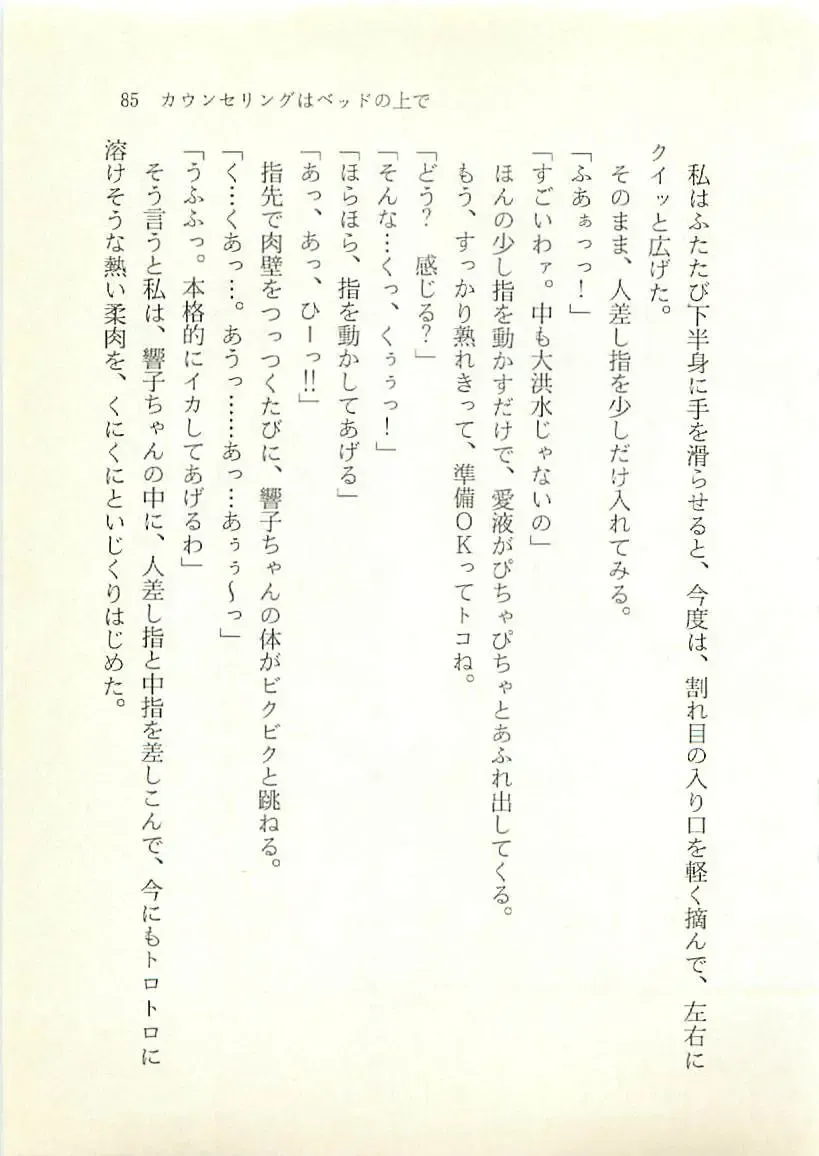 85　カウンセリングはベッドの上で
私はふたたび下半身に手を滑らせると、今度は、割れ目の入り口を軽く摘んで、左右に
クイッと広げた。
そのまま、人差し指を少しだけ入れてみる。
「ふあぁっっ！」
「すごいわァ。中も大洪水じゃないの」
ほんの少し指を動かすだけで、愛液がぴちゃぴちゃとあふれ出してくる。
もう、すっかり熟れきって、準備ＯＫってトコね。
「どう？　感じる？」
「そんな…くっ、くぅぅっ！」
「ほらほら、指を動かしてあげる」
「あっ、あっ、ひーっ!!」
指先で肉壁をつっつくたびに、響子ちゃんの体がビクビクと跳ねる。
「く…くあっ…。あうっ……あっ…あぅぅ～っ」
「うふふっ。本格的にイカしてあげるわ」
そう言うと私は、響子ちゃんの中に、人差し指と中指を差しこんで、今にもトロトロに
溶けそうな熱い柔肉を、くにくにといじくりはじめた。